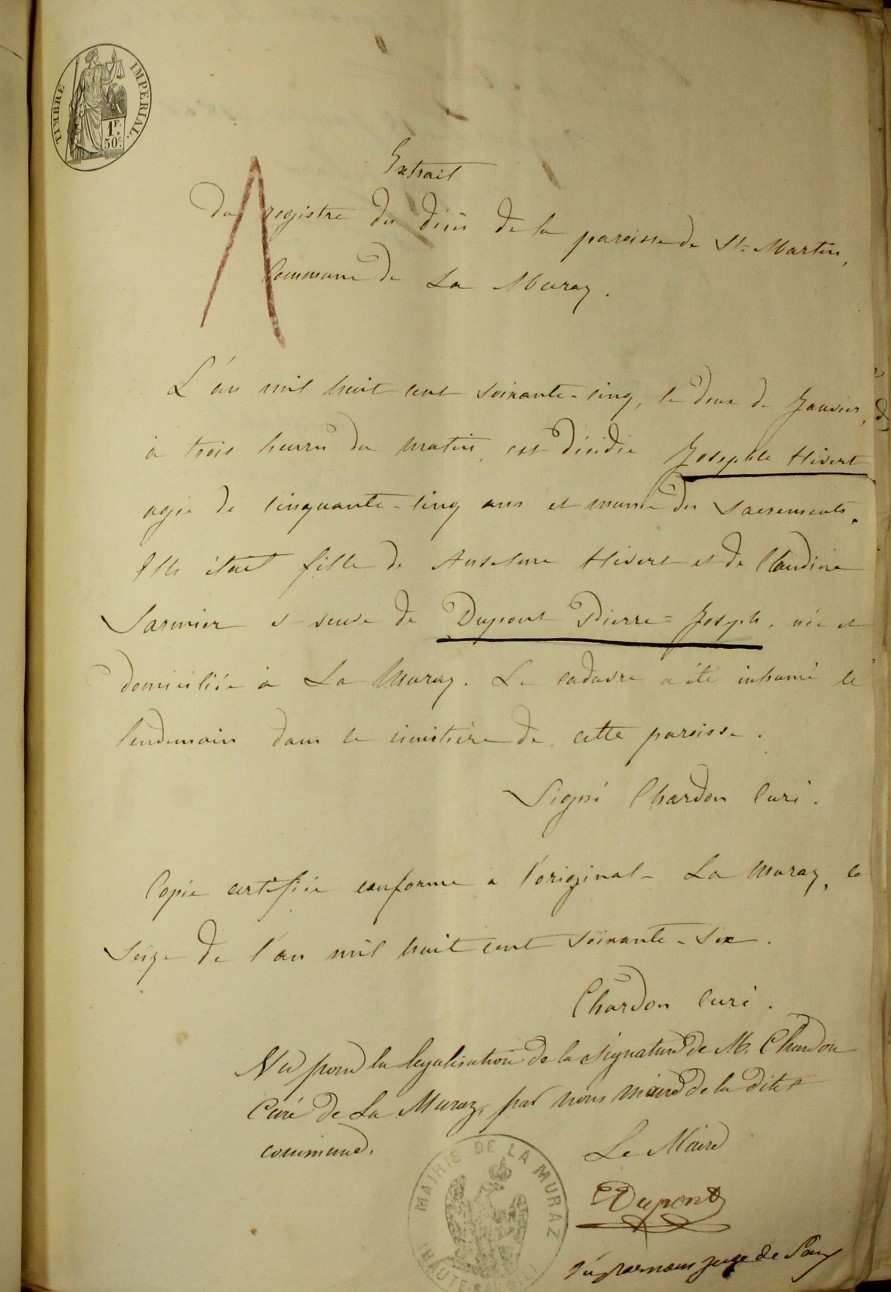 TIMBRE IMPERIAL.
1F.
50c
Extrait
Du registre des décès de la paroisse de St. Martin,
Commune de La Muraz.
L'an mil huit cent soixante-cinq, le deux de Janvier,
à trois heures du matin, est décédée Josephte Hivert
agée de cinquante-cinq ans et munie des Sacrements.
Elle était fille de Anselme Hivert et de Claudine
et veuve de Dupont Pierre-Joseph, née et
domiciliée à La Muraz. Le cadavre a été inhumé le
lendemain dans le cimetière de cette paroisse.
Signé Chardon Curé.
Copie certifiée conforme à l'original - La Muraz, le
seize de l'an mil huit cent soixante-six.
Chardon Curé.
Vu pour la légalisation de la signature de M. Chardon
Curé de La Muraz, par nous maire de la dite
commune.
Le Maire
Dupont
MAIRIE DE LA MURAZ
Vu par nous juge de Paix